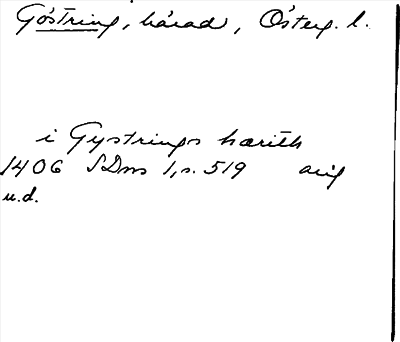 Göstring, härad, Österg. l.
i Gystrings hærith
1406 SDns 1, s. 519 orig
u.d.